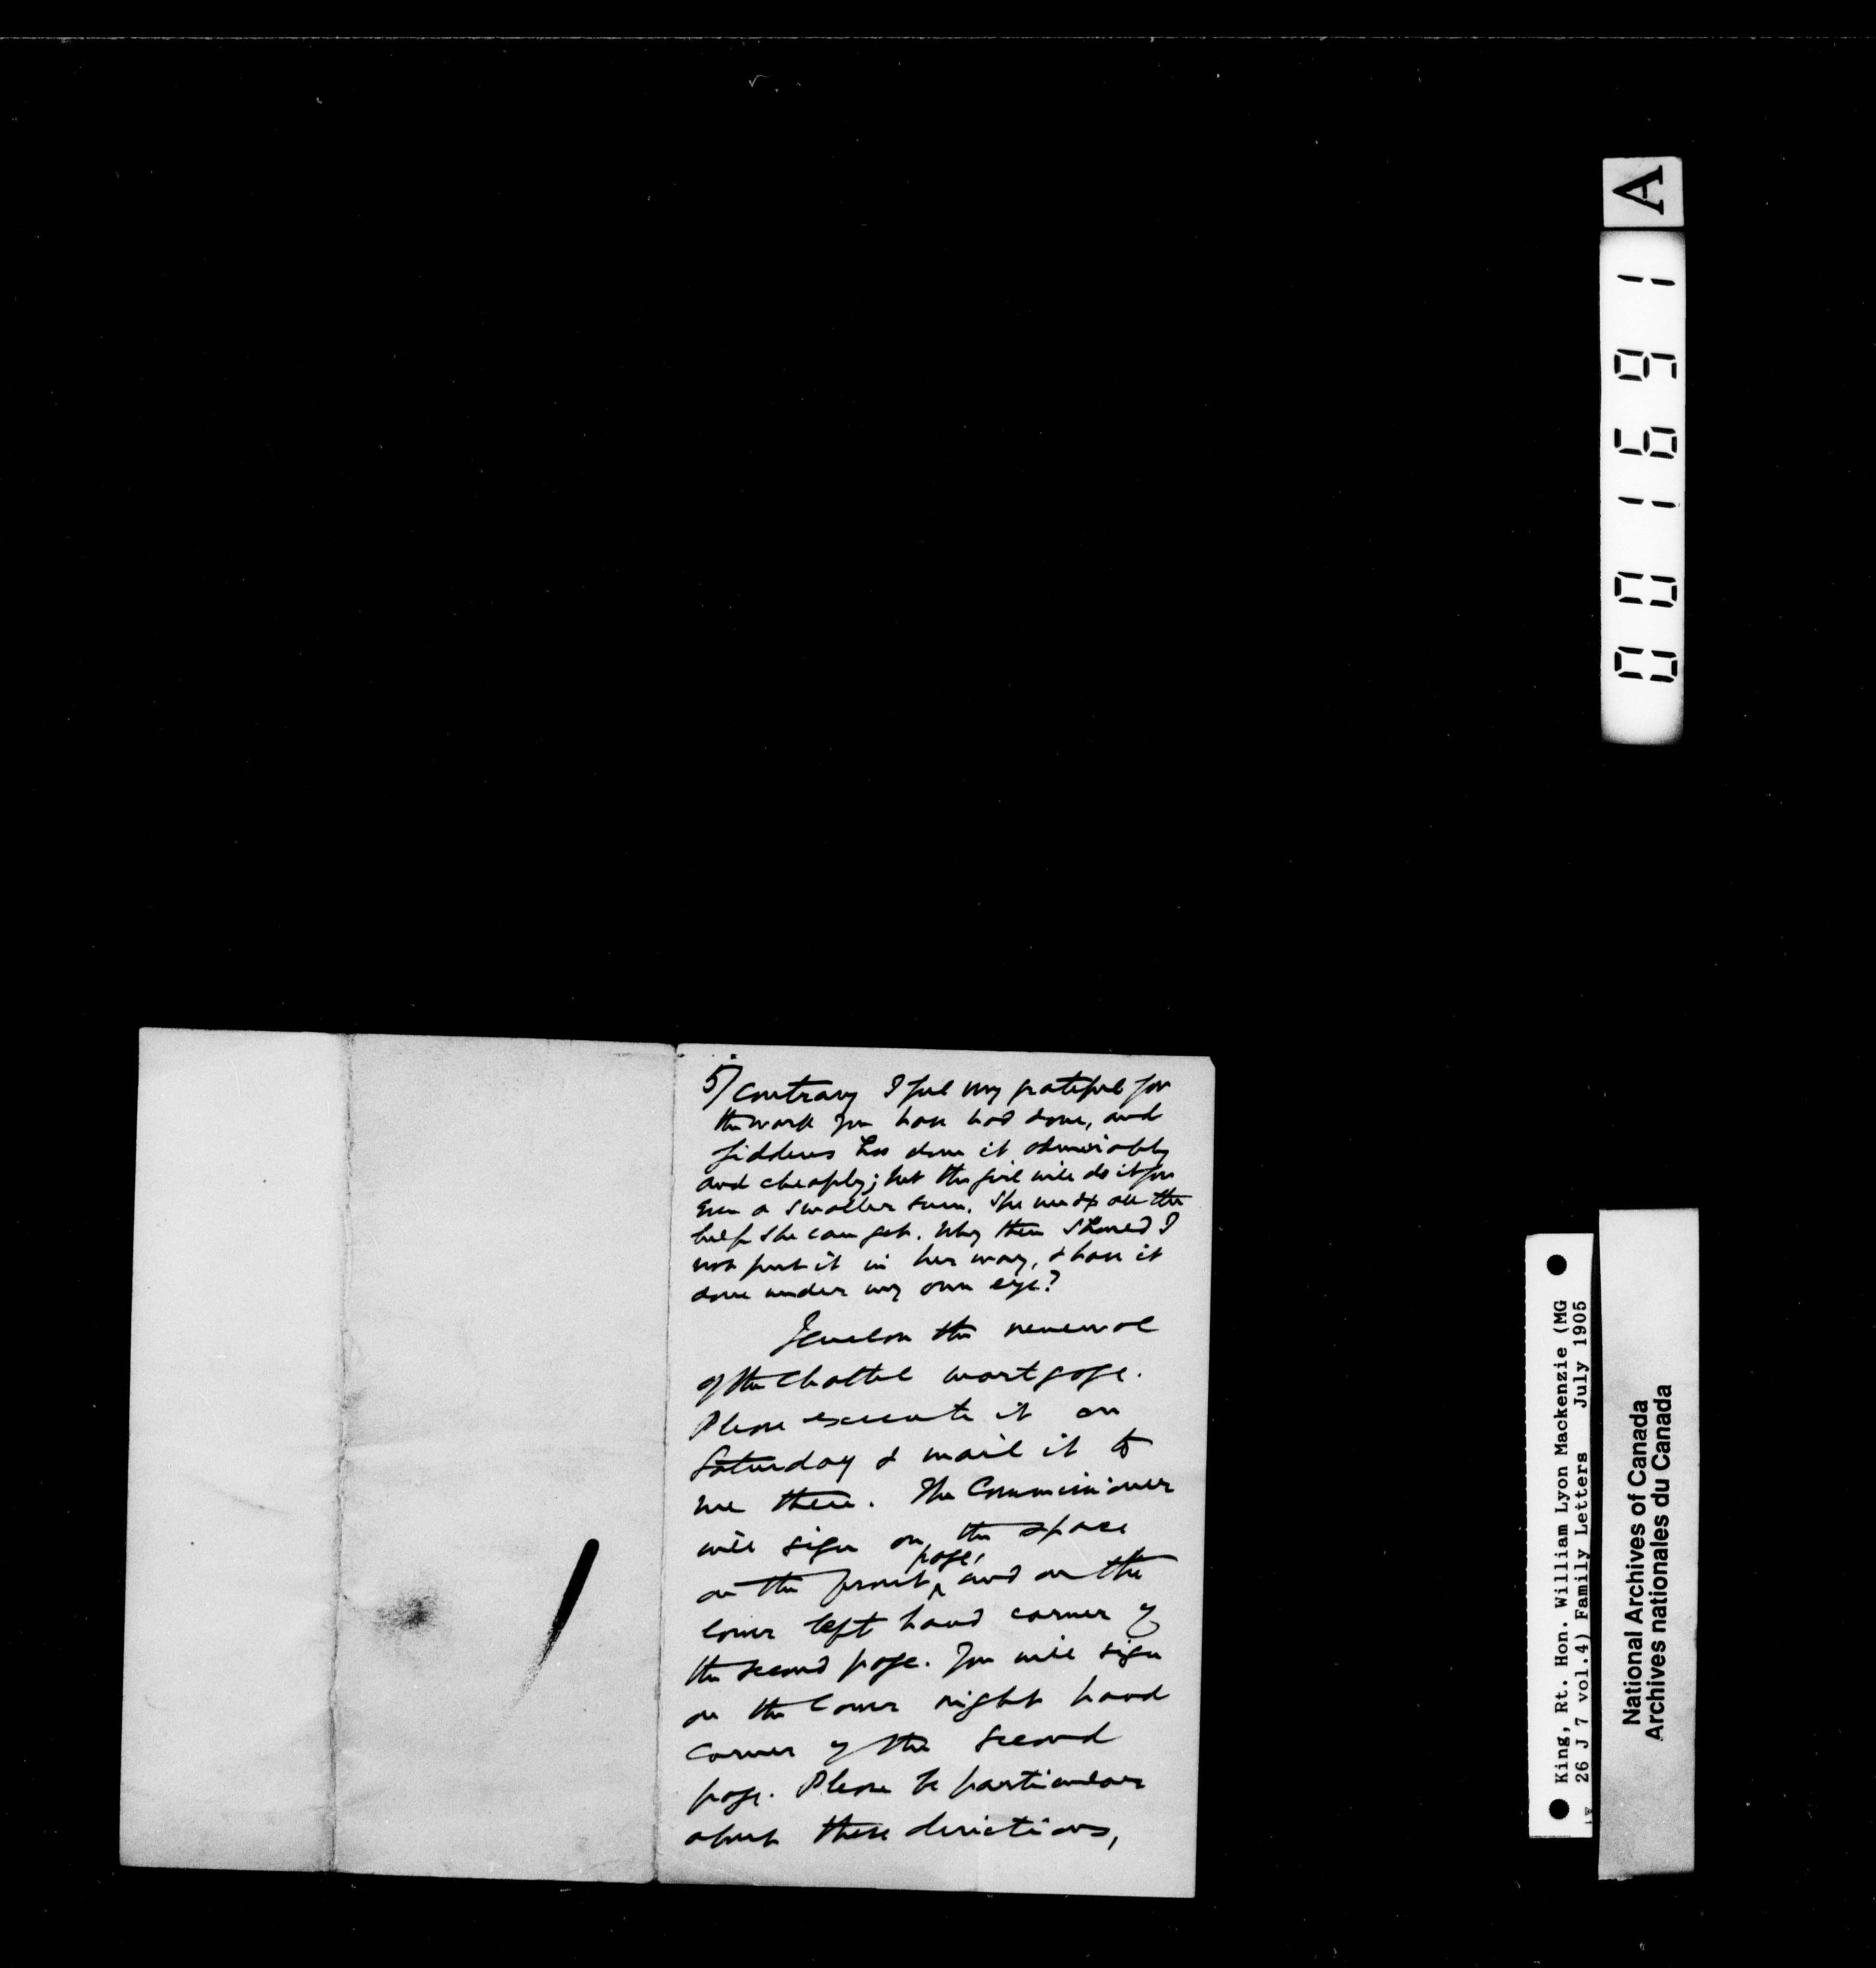 5/ contrary I feel very grateful for
the work you have had done, and
Giddens has done it admirably
and cheaply; but the girl will do it for
even a smaller sum. She needs all the
help she can get. Why then should I
not put it in her way, & have it
done under my own eye?
I enclose the renewal
of the Chattel mortgage.
Please execute it on
Saturday & mail it to
me there. The Commissioner
will sign on the space
on the front page, and on the
lower left hand corner of
the second page. You will sign
on the lower right hand
corner of the second
page. Please be particular
about these directions,
A
001691
King, Rt. Hon. William Lyon Mackenzie (MG
26 J 7 vol.4) Family Letters July 1905
National Archives of Canada
Archives nationales du Canada